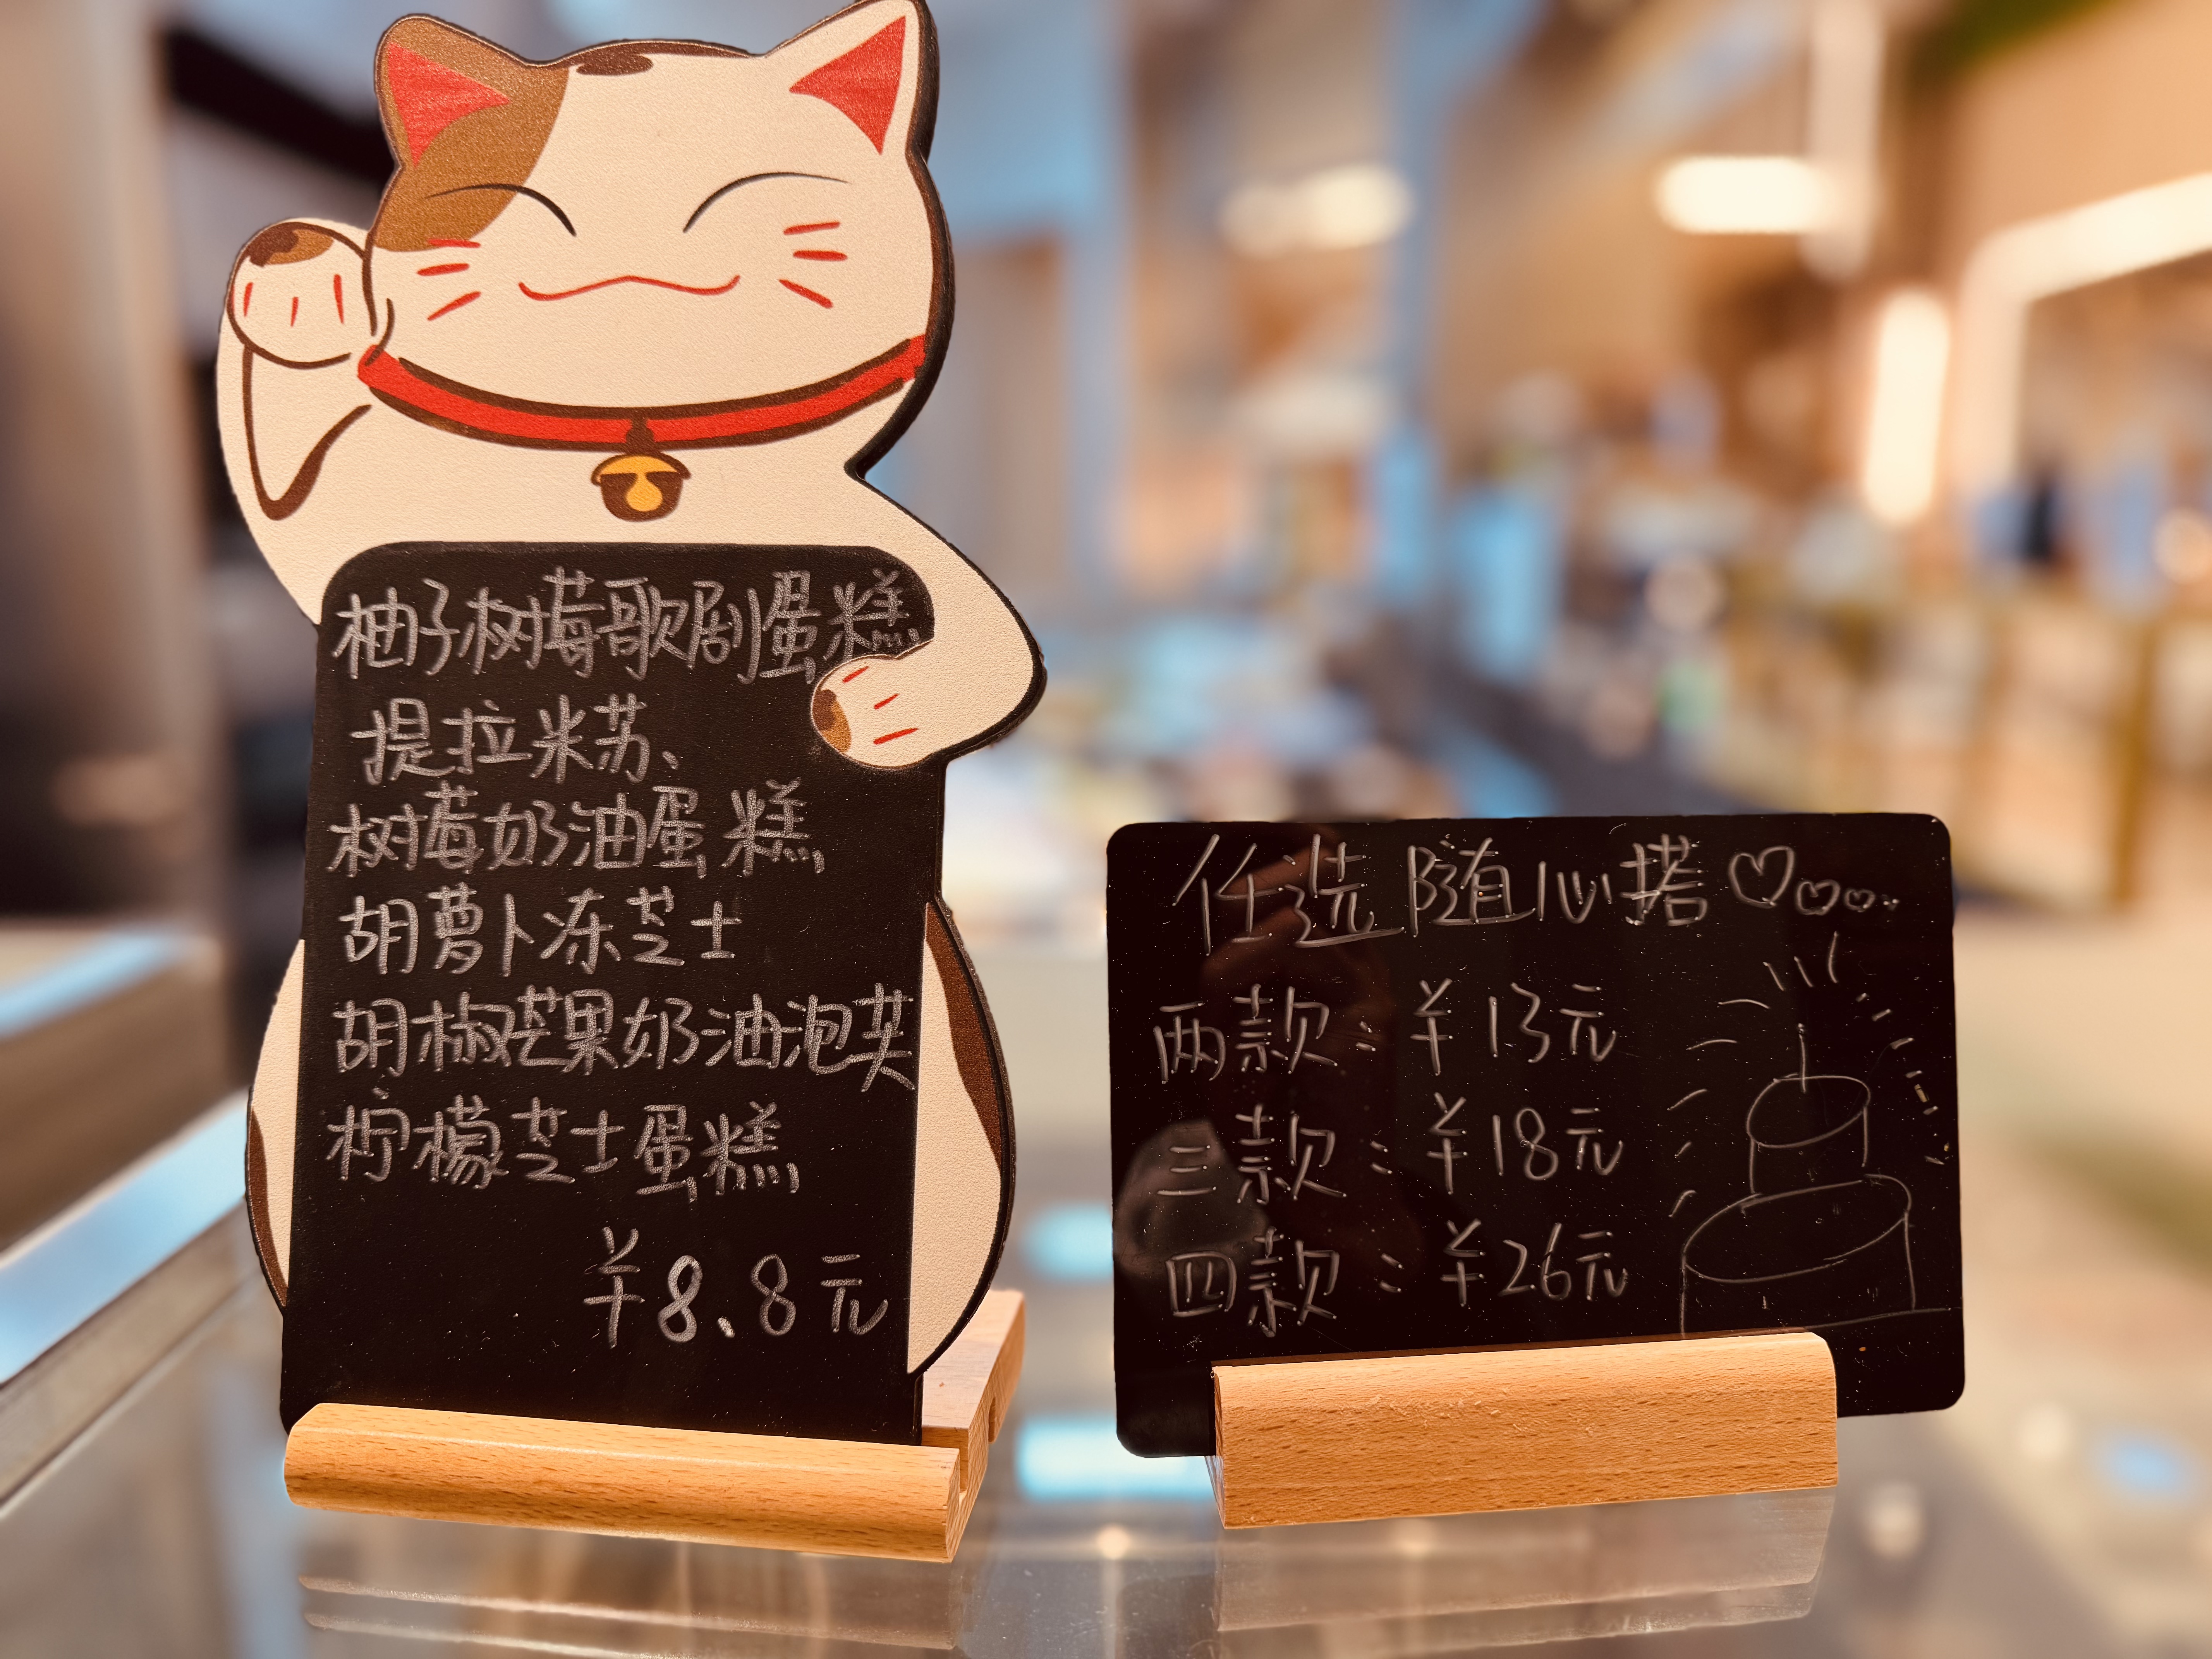 柚子树莓歌剧蛋糕
提拉米苏、
树莓奶油蛋糕
胡萝卜冻芝士
胡椒芒果奶油泡芙
柠檬芝士蛋糕
¥8.8元
任选随心搭♡♡♡..
两款:¥13元
三款:¥18元
四款:¥26元